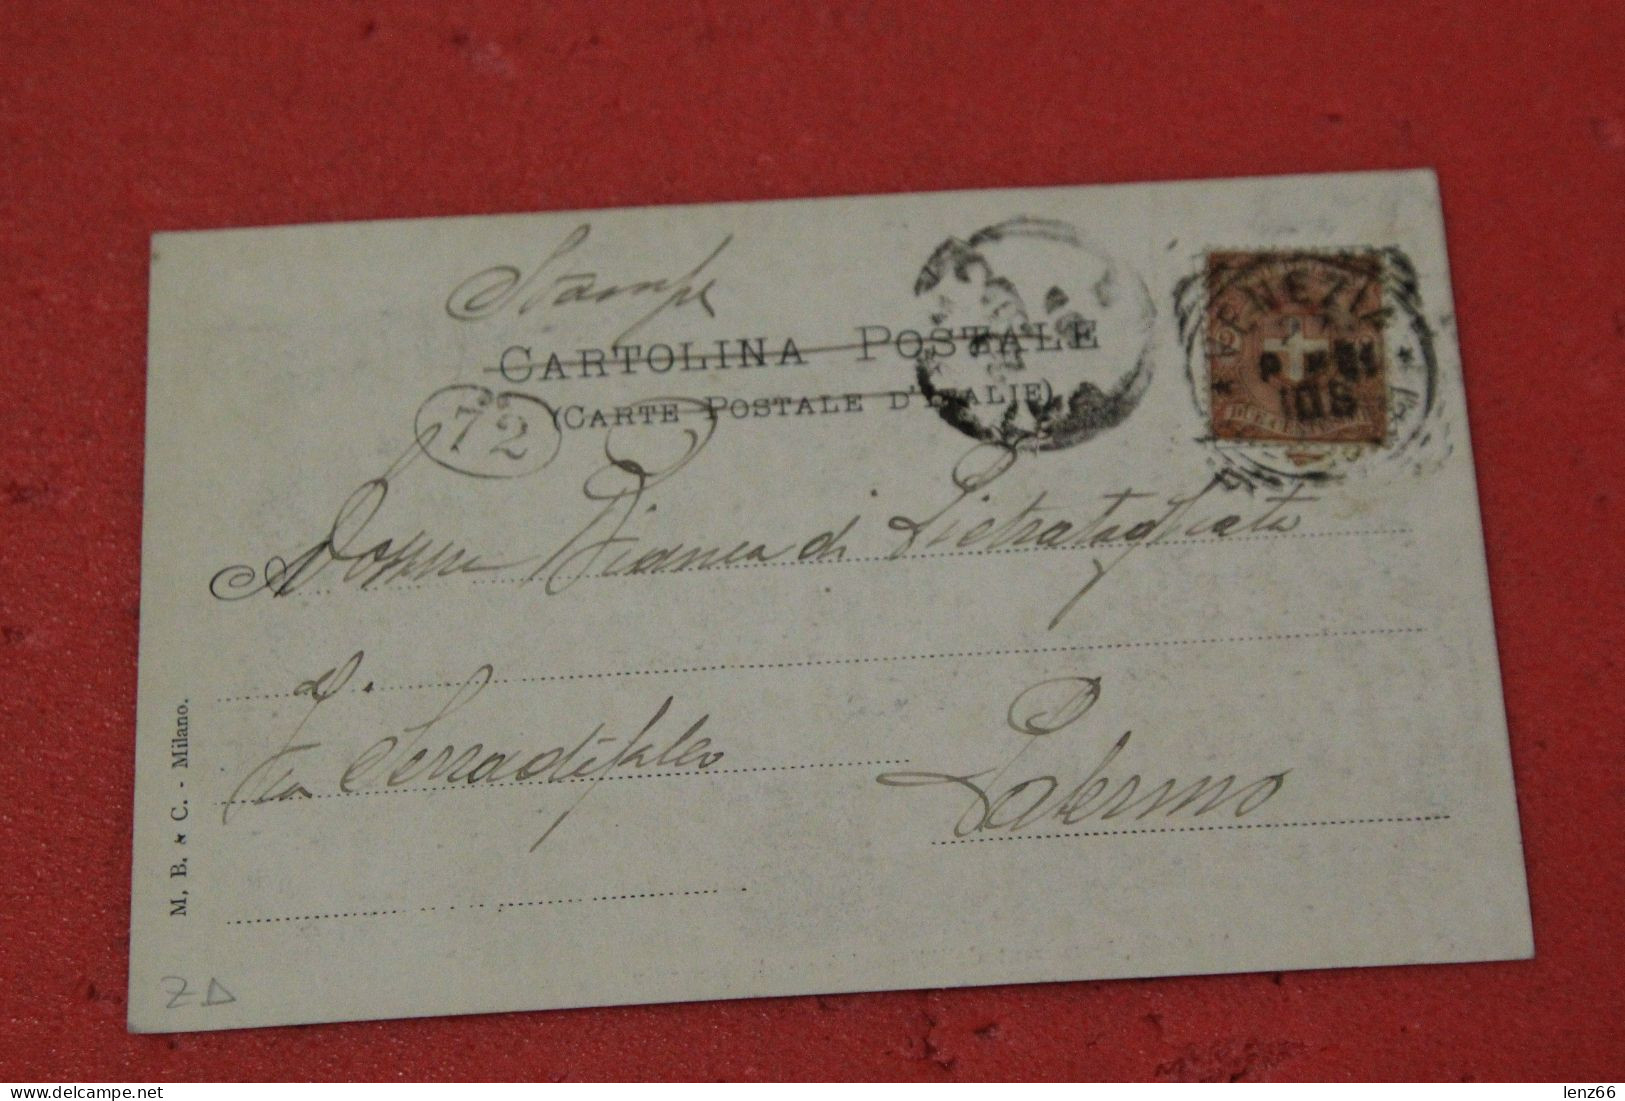 Stampe
CARTOLINA POSTALE
(CARTE POSTALE D'ITALIE)
72
VENEZIA
DUE CENTESIMI
A Donna Bianca di Pietratagliata
Via Serradifalco
Palermo
M. B. & C. - Milano.
ZD
delcampe.net
lenz66